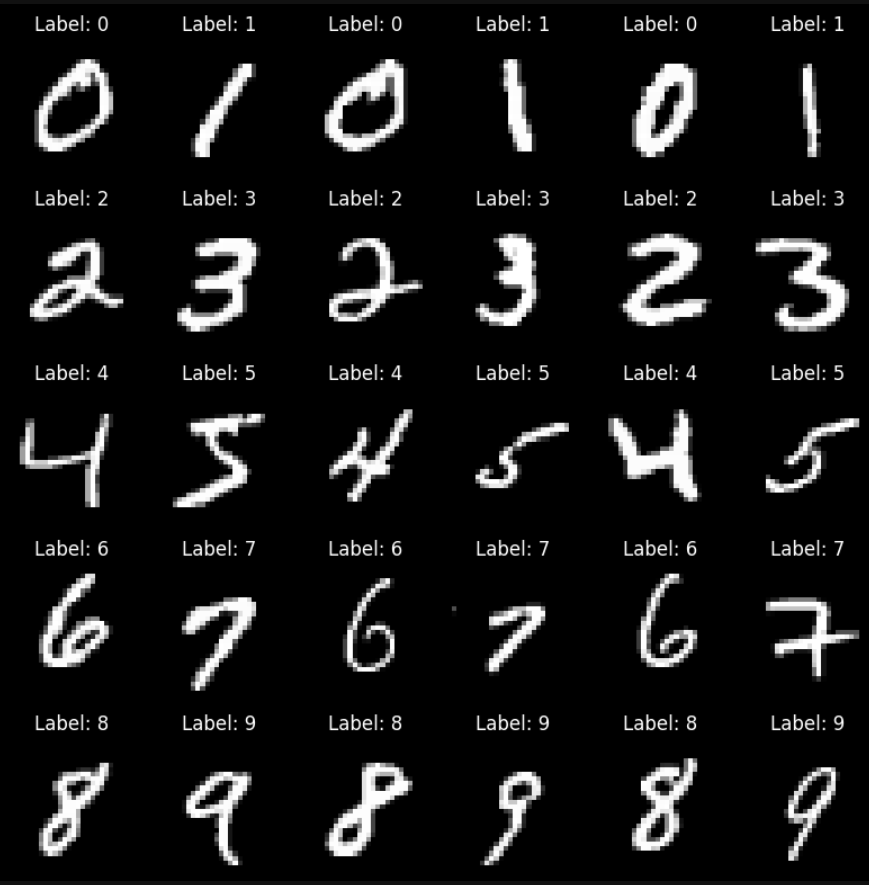 Label: 0 Label: 1 Label: 0 Label: 1 Label: 0 Label: 1
0 1 0 1 0 1
Label: 2 Label: 3 Label: 2 Label: 3 Label: 2 Label: 3
2 3 2 3 2 3
Label: 4 Label: 5 Label: 4 Label: 5 Label: 4 Label: 5
4 5 4 5 4 5
Label: 6 Label: 7 Label: 6 Label: 7 Label: 6 Label: 7
6 7 6 7 6 7
Label: 8 Label: 9 Label: 8 Label: 9 Label: 8 Label: 9
8 9 8 9 8 9